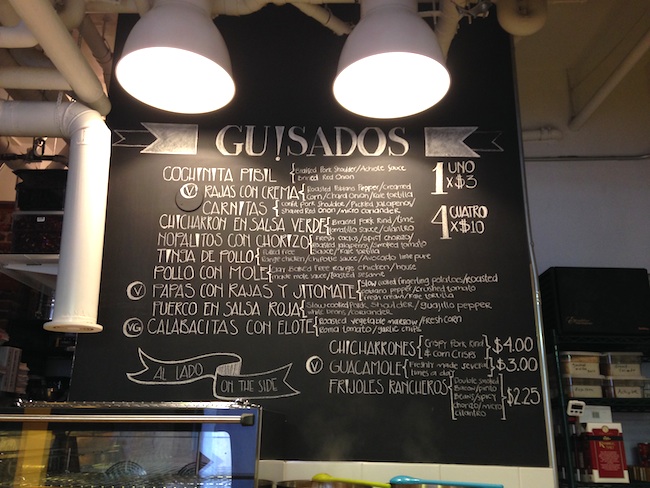 GU!SADOS
COCHINITA PIBIL { Braised Pork Shoulder/Achiote Sauce
Brined Red Onion
V RAJAS CON CREMA { Roasted Poblano Pepper/Creamed
Corn/Chard Onion/Kale tortilla
CARNITAS { Confit Pork Shoulder/Pickled Jalapeno/
Shaved Red Onion/micro coriander
CHICHARRON EN SALSA VERDE { Braised Pork Rind/lime
tomatillo Sauce/cilantro
NOPALITOS CON CHORIZO { Fresh Cactus/Spicy chorizo/
Roasted Jalapeno/Smoked tomato
Sauce/Kale tortilla
TINGA DE POLLO { Pulled Free
Range chicken/chipotle sauce/Avocado lime pure
POLLO CON MOLE { Clay Baked free range chicken/house
made mole sauce/Toasted Sesame
V PAPAS CON RAJAS Y JITOMATE { Slow cooked fingerling potatoes/Roasted
Poblano pepper/Crushed tomato
Fresh cream/Kale tortilla
PUERCO EN SALSA ROJA { Slow cooked Pork Shoulder/guajillo pepper
white beans/coriander
VG CALABACITAS CON ELOTE { Roasted vegetable makeshow/Fresh Corn
Roma tomato/garlic chips
1 UNO
x$3
4 CUATRO
x$10
AL LADO
ON THE SIDE
CHICHARRONES { Crispy Pork Rind
& corn Crisps } $4.00
V GUACAMOLE { Freshly made several
times a day } $3.00
FRIJOLES RANCHEROS { Double smoked
Bacon/pinto
Beans/spicy
chorizo/micro
cilantro } $2.25